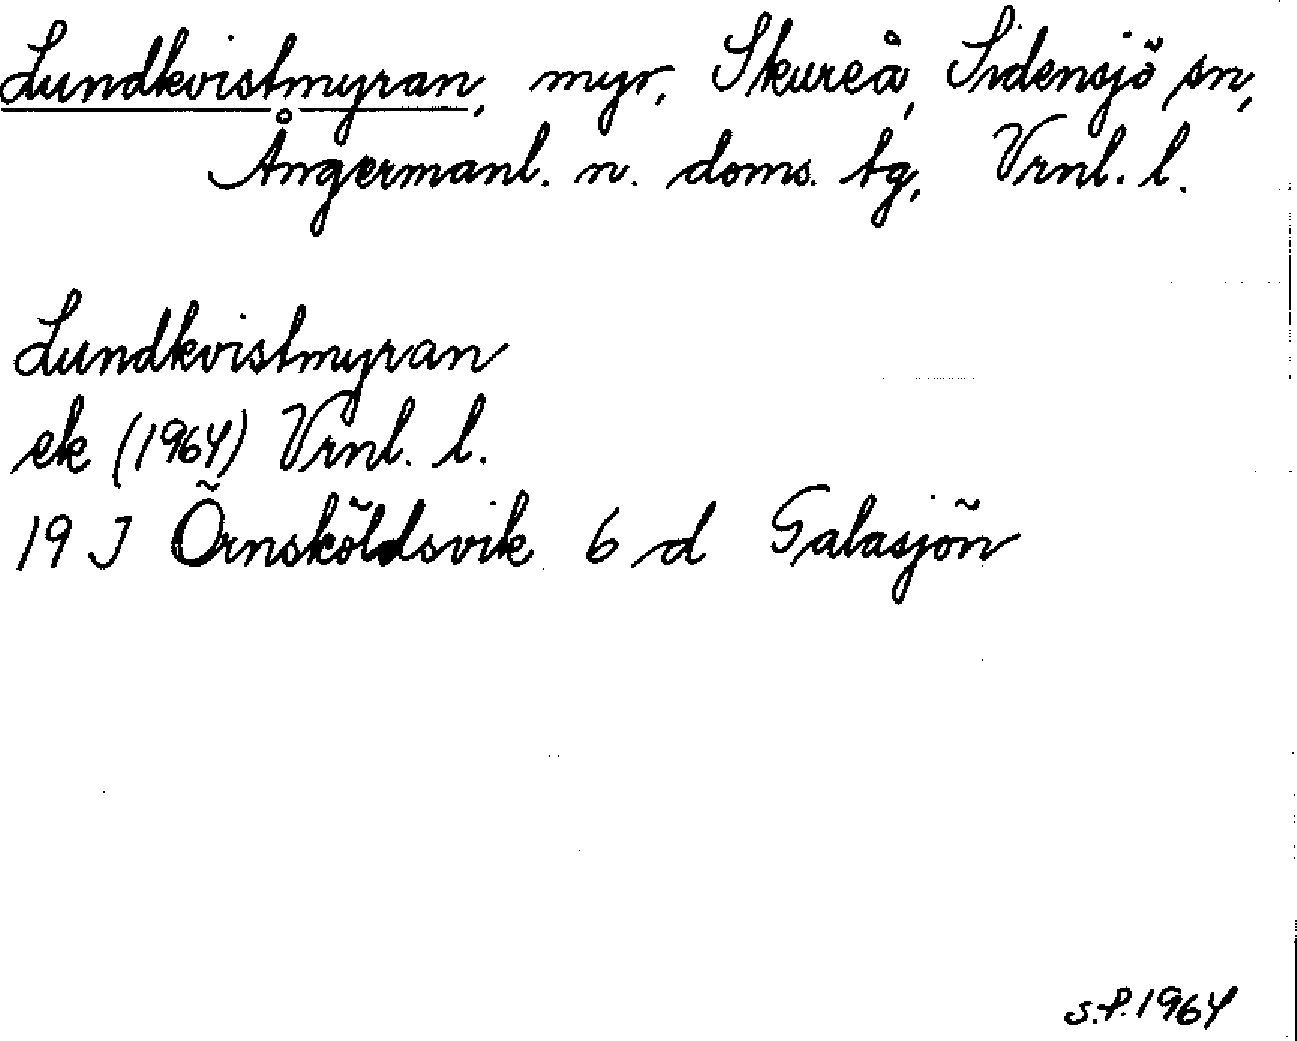 Lundkvistmyran, myr, Skureå, Sidensjö sn,
Ångermanl. n. doms. tg, Vrnl. l.
Lundkvistmyran
ek (1964) Vrnl. l.
19 J Örnsköldsvik 6 d Galasjön
s.f. 1964